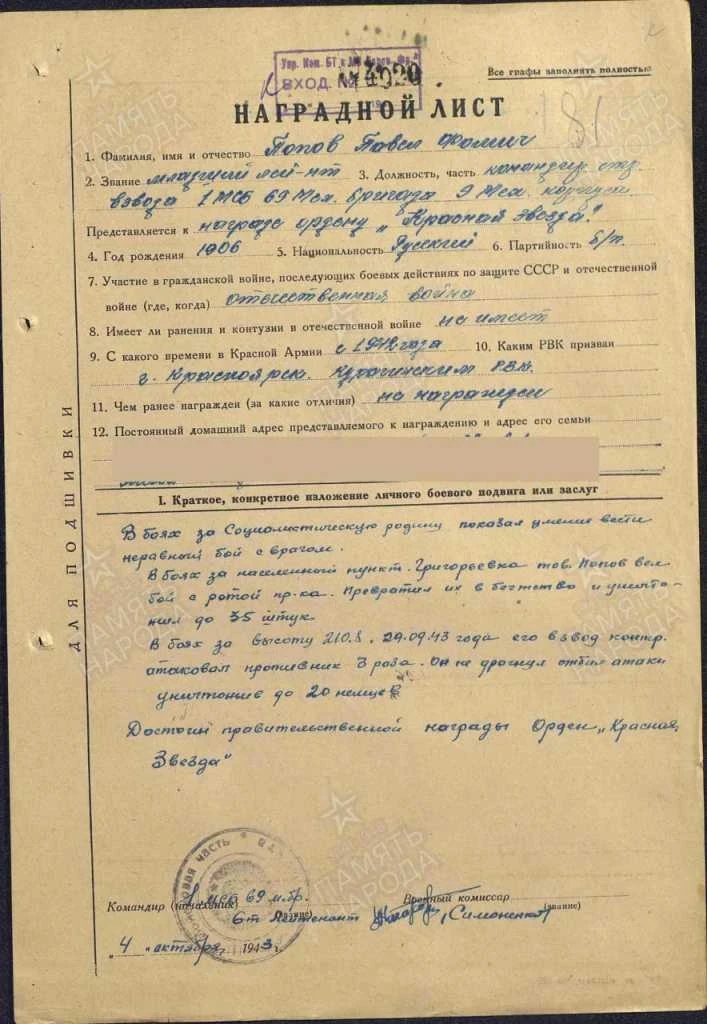 Упр. Ком. БТ и МВ
ВХОД. № 4020
Все графы заполнять полностью
181
НАГРАДНОЙ ЛИСТ
1. Фамилия, имя и отчество Попов Павел Фомич
2. Звание младший лей-нт 3. Должность, часть командир стр.
взвода 1 МСБ 69 Мех. бригада 9 Мех. корпуса
Представляется к награде ордену „Красная звезда"
4. Год рождения 1906 5. Национальность Русский 6. Партийность б/п.
7. Участие в гражданской войне, последующих боевых действиях по защите СССР и отечественной
войне (где, когда) отечественная война
8. Имеет ли ранения и контузии в отечественной войне не имеет
9. С какого времени в Красной Армии с 1942 года 10. Каким РВК призван
г. Красноярск. Курагинским РВК.
11. Чем ранее награжден (за какие отличия) не награжден
12. Постоянный домашний адрес представляемого к награждению и адрес его семьи
I. Краткое, конкретное изложение личного боевого подвига или заслуг
В боях за Социалистическую родину показал умение вести
неравный бой с врагом.
В боях за населенный пункт. Григорьевка тов. Попов вел
бой с ротой пр-ка. Превратил их в бегство и уничто-
жил до 35 штук.
В боях за высоту 210.8, 29.09.43 года его взвод контр.
атаковал противник 3 раза. Он не дрогнул отбил атаки
уничтожив до 20 немцев
Достоин правительственной награды Орден „Красная
Звезда"
Командир (начальник) 1 МСБ 69 м.бр. Военный комиссар
(звание) (звание)
Ст Лейтенант (Симоненко)
„4" октября 1943 г.
ДЛЯ ПОДШИВКИ
ПАМЯТЬ НАРОДА